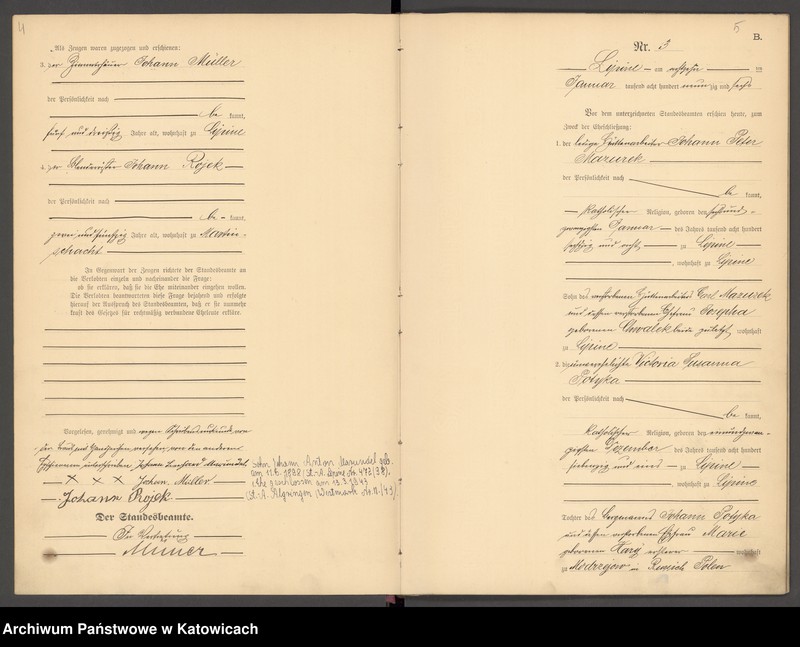 4
Als Zeugen waren zugezogen und erschienen:
3. der Zimmerhäuer Johann Müller
der Persönlichkeit nach
be kannt,
fünf und dreißig Jahre alt, wohnhaft zu Lipine
4. der Johann Rojek
der Persönlichkeit nach
be- kannt,
zwei und fünfzig Jahre alt, wohnhaft zu Martin-
schacht
In Gegenwart der Zeugen richtete der Standesbeamte an
die Verlobten einzeln und nacheinander die Frage:
ob sie erklären, daß sie die Ehe miteinander eingehen wollen.
Die Verlobten beantworteten diese Frage bejahend und erfolgte
hierauf der Ausspruch des Standesbeamten, daß er sie nunmehr
kraft des Gesetzes für rechtmäßig verbundene Eheleute erkläre.
Vorgelesen, genehmigt und wegen Schreibensunkunde von
der Braut mit Handzeichen versehen, von den anderen
Erschienenen unterschrieben Johann
× × × Johann Müller
Johann Rojek
Der Standesbeamte.
In Vertretung
Sohn Johann Anton geb.
am 11.6.1888 (St.-A. Lipine No. 473/38),
Ehe geschlossen am 13.3.1943
(St.-A. Algringen (Westmark No. 11/43).
5
B.
Nr. 3
Lipine am achtzehn ten
Januar tausend acht hundert neun zig und sechs
Vor dem unterzeichneten Standesbeamten erschien heute, zum
Zweck der Eheschließung:
1. der ledige Hüttenarbeiter Johann Peter
Mazurek
der Persönlichkeit nach
be kannt,
katholischer Religion, geboren den sechsund-
zwanzigsten Januar des Jahres tausend acht hundert
sechszig und acht zu Lipine
, wohnhaft zu Lipine
Sohn des verstorbenen Hüttenarbeiters Carl Mazurek
und dessen verstorbenen Ehefrau Josepha
geborenen Chwalek beide zuletzt wohnhaft
zu Lipine
2. die unverehelichte Victoria Susanna
Potyka
der Persönlichkeit nach
be kannt,
katholischer Religion, geboren den einundzwan-
zigsten Dezember des Jahres tausend acht hundert
siebenzig und eins zu Lipine
, wohnhaft zu Lipine
Tochter des Bergmanns Johann Potyka
und dessen verstorbenen Ehefrau Marie
geborenen ersterer wohnhaft
zu Modrzejow in Russisch Polen
Archiwum Państwowe w Katowicach